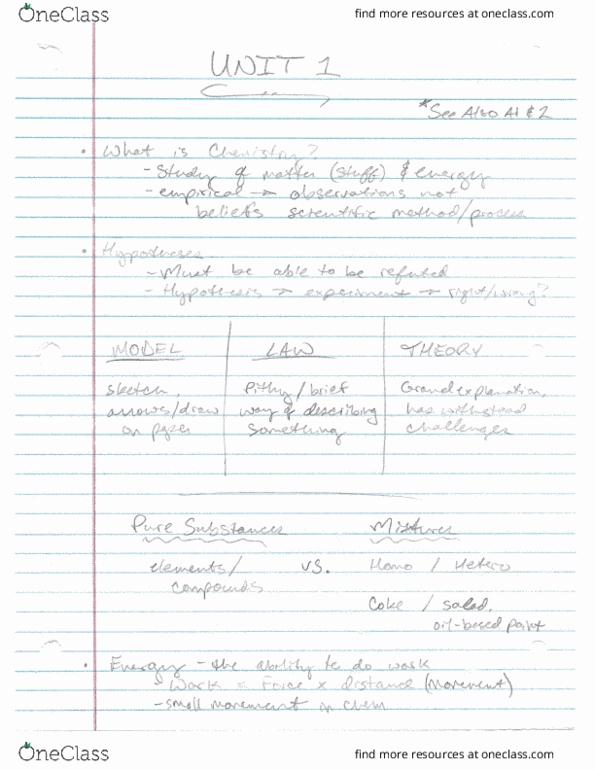 OneClass
find more resources at oneclass.com
UNIT 1
*See Also A1 & 2
• What is Chemistry?
- Study of matter (stuff) & energy
- empirical → observations not
beliefs scientific method/process
• Hypotheses
- Must be able to be refuted
- Hypothesis → experiment → right/wrong?
MODEL LAW THEORY
sketch, Pithy/brief Grand explanation,
arrows/draw way of describing has withstood
on paper something challenges
Pure Substances Mixtures
elements/ vs. Homo / Hetero
compounds
Coke / salad,
oil-based paint
• Energy - the ability to do work
- Work = Force x distance (movement)
- small movement in chem
OneClass
find more resources at oneclass.com